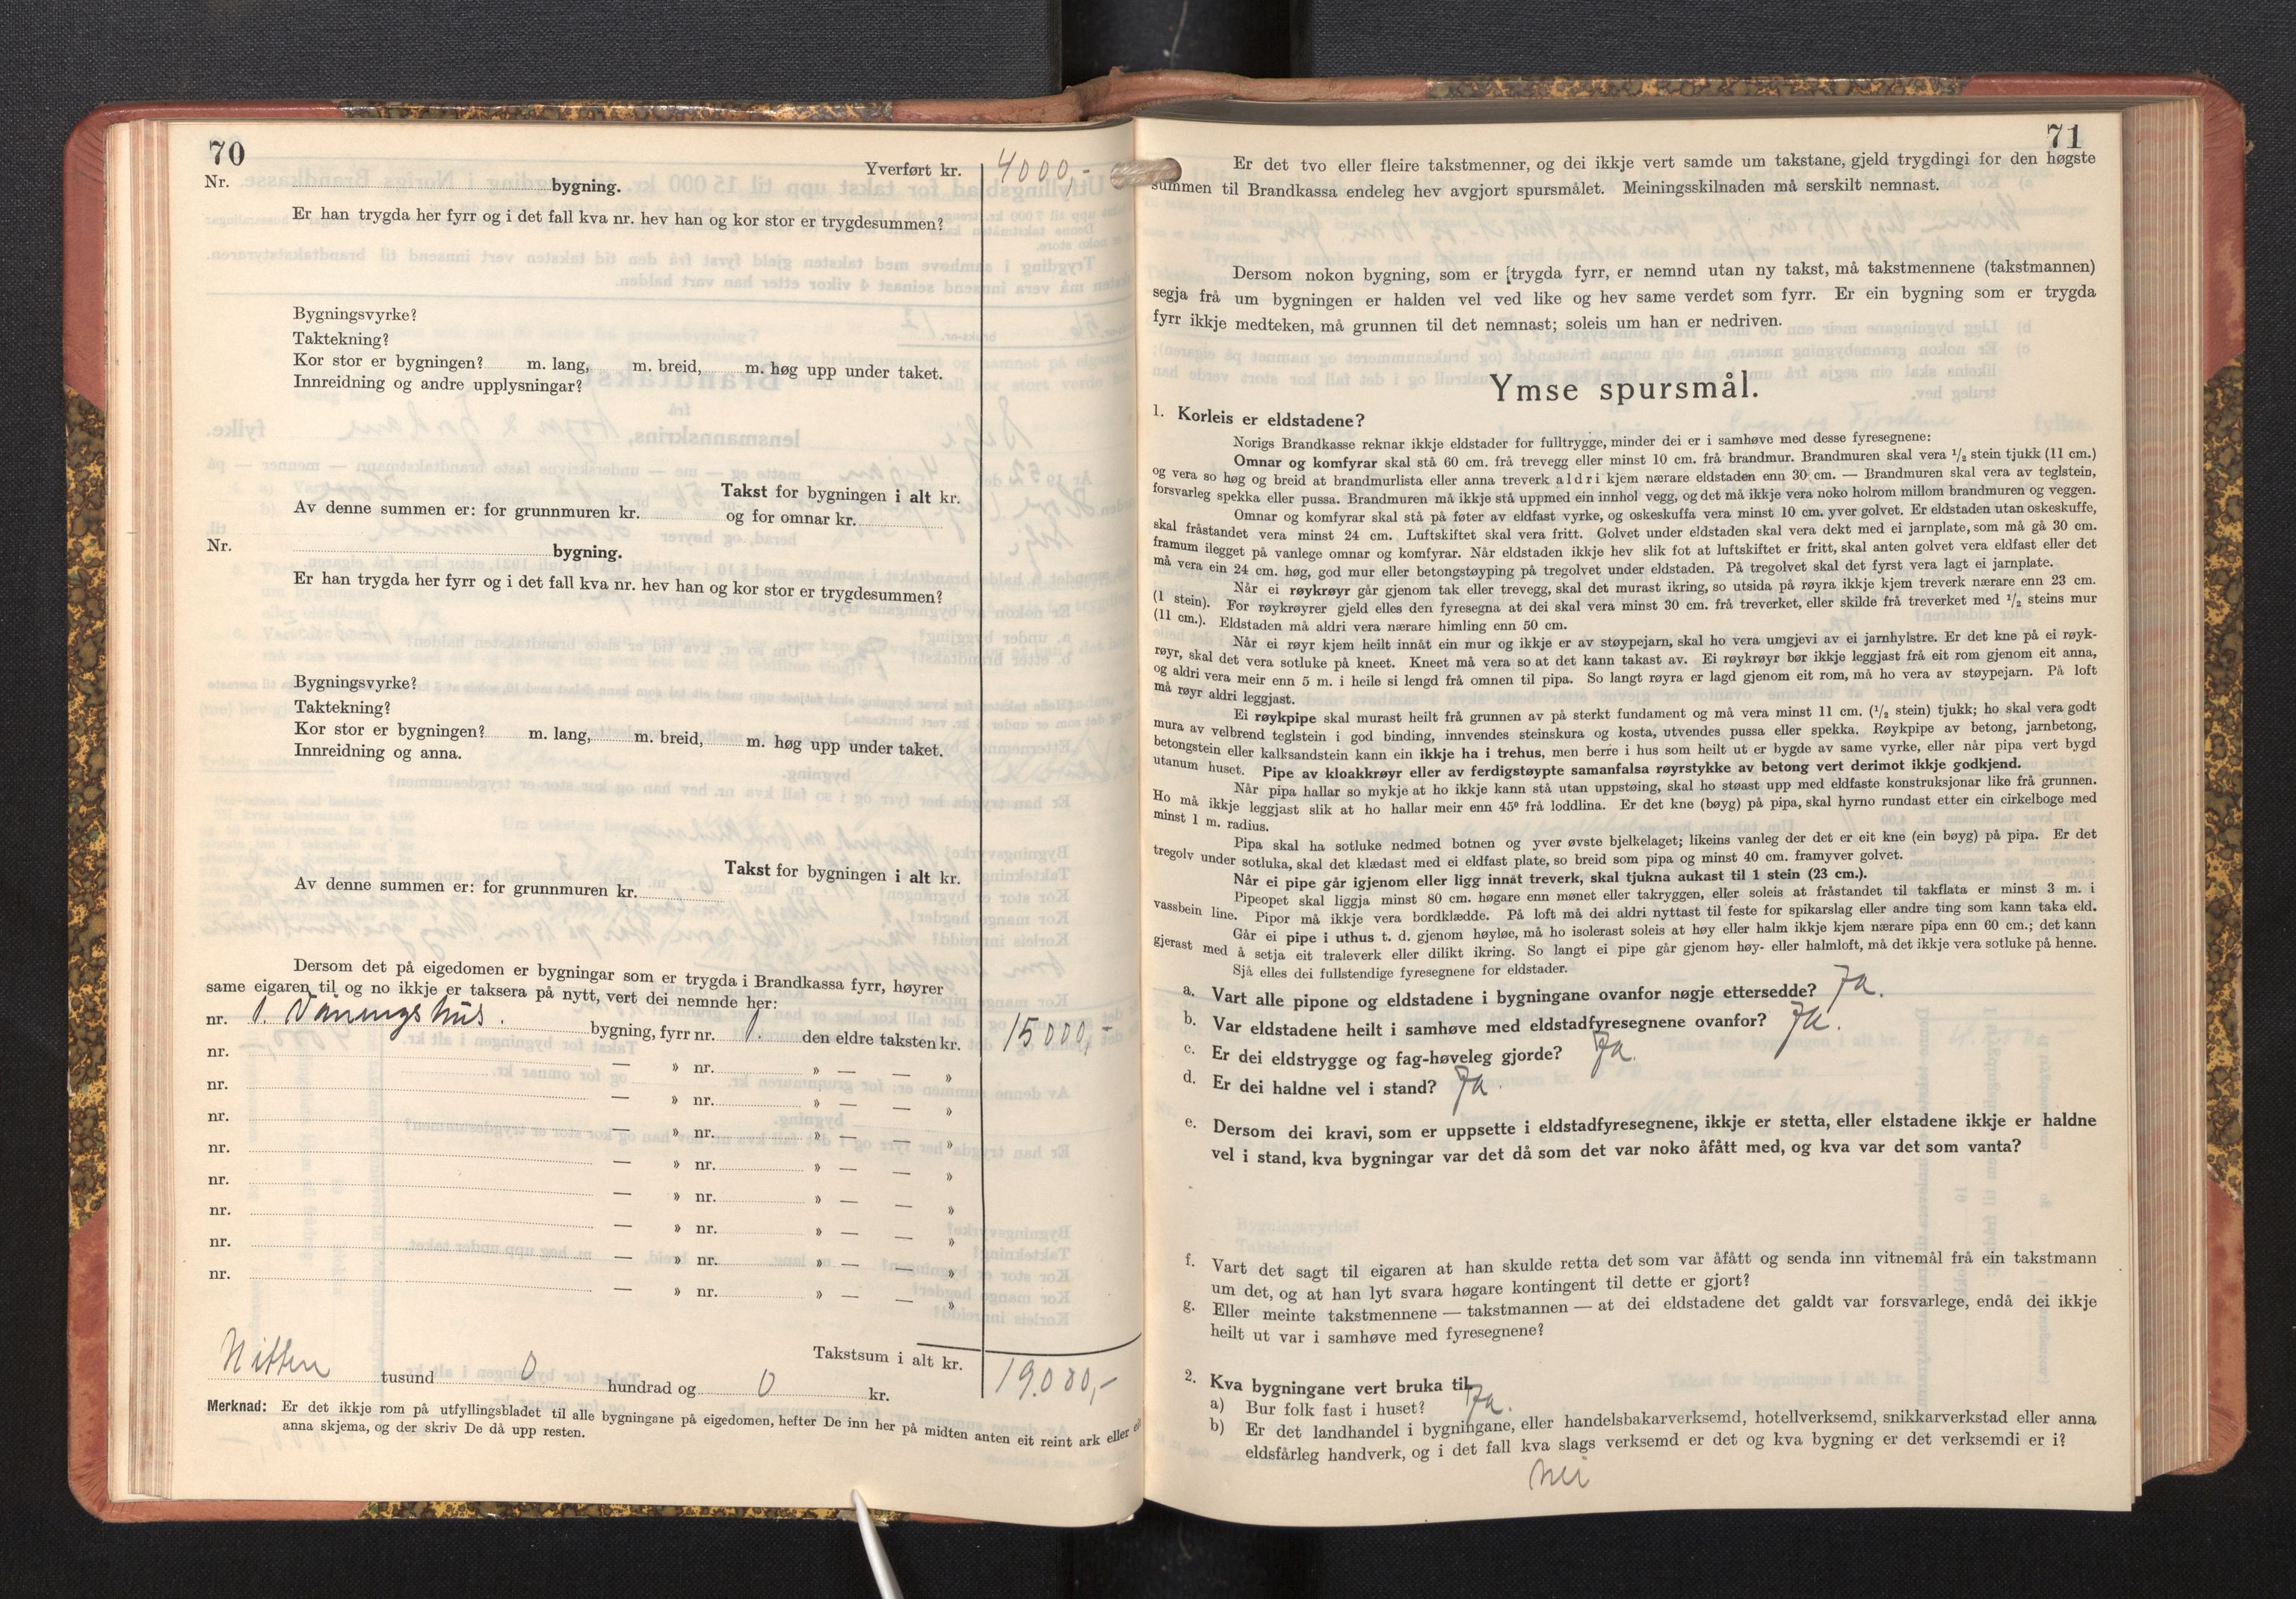 70
Yverført kr. 4000,-
Nr. bygning.
Er han trygda her fyrr og i det fall kva nr. hev han og kor stor er trygdesummen?
Bygningsvyrke?
Taktekning?
Kor stor er bygningen? m. lang, m. breid, m. høg upp under taket.
Innreidning og andre upplysningar?
Takst for bygningen i alt kr.
Av denne summen er: for grunnmuren kr. og for omnar kr.
Nr. bygning.
Er han trygda her fyrr og i det fall kva nr. hev han og kor stor er trygdesummen?
Bygningsvyrke?
Taktekning?
Kor stor er bygningen? m. lang, m. breid, m. høg upp under taket.
Innreidning og anna.
Takst for bygningen i alt kr.
Av denne summen er: for grunnmuren kr.
Dersom det på eigedomen er bygningar som er trygda i Brandkassa fyrr, høyrer
same eigaren til og no ikkje er taksera på nytt, vert dei nemnde her:
nr. 1. Våningshus. bygning, fyrr nr. 1. den eldre taksten kr. 15000,-
nr. — » nr. » — — »
nr. — » nr. » — — »
nr. — » nr. » — — »
nr. — » nr. » — — »
nr. — » nr. » — — »
nr. — » nr. » — — »
nr. — » nr. » — — »
nr. — » nr. » — — »
Takstsum i alt kr. 19.000,-
Nitten tusund 0 hundrad og 0 kr.
Merknad: Er det ikkje rom på utfyllingsbladet til alle bygningane på eigedomen, hefter De inn her på midten anten eit reint ark eller
anna skjema, og der skriv De då upp resten.
71
Er det tvo eller fleire takstmenner, og dei ikkje vert samde um takstane, gjeld trygdingi for den høgste
summen til Brandkassa endeleg hev avgjort spursmålet. Meiningsskilnaden må serskilt nemnast.
Dersom nokon bygning, som er [trygda fyrr, er nemnd utan ny takst, må takstmennene (takstmannen)
segja frå um bygningen er halden vel ved like og hev same verdet som fyrr. Er ein bygning som er trygda
fyrr ikkje medteken, må grunnen til det nemnast; soleis um han er nedriven.
Ymse spursmål.
1. Korleis er eldstadene?
Norigs Brandkasse reknar ikkje eldstader for fulltrygge, minder dei er i samhøve med desse fyresegnene:
Omnar og komfyrar skal stå 60 cm. frå trevegg eller minst 10 cm. frå brandmur. Brandmuren skal vera 1/2 stein tjukk (11 cm.)
og vera so høg og breid at brandmurlista eller anna treverk aldri kjem nærare eldstaden enn 30 cm. — Brandmuren skal vera av teglstein,
forsvarleg spekka eller pussa. Brandmuren må ikkje stå uppmed ein innhol vegg, og det må ikkje vera noko holrom millom brandmuren og veggen.
Omnar og komfyrar skal stå på føter av eldfast vyrke, og oskeskuffa vera minst 10 cm. yver golvet. Er eldstaden utan oskeskuffe,
skal fråstandet vera minst 24 cm. Luftskiftet skal vera fritt. Golvet under eldstaden skal vera dekt med ei jarnplate, som må gå 30 cm.
framum ilegget på vanlege omnar og komfyrar. Når eldstaden ikkje hev slik fot at luftskiftet er fritt, skal anten golvet vera eldfast eller det
må vera ein 24 cm. høg, god mur eller betongstøyping på tregolvet under eldstaden. På tregolvet skal det fyrst vera lagt ei jarnplate.
Når ei røykrøyr går gjenom tak eller trevegg, skal det murast ikring, so utsida på røyra ikkje kjem treverk nærare enn 23 cm.
(1 stein). For røykrøyrer gjeld elles den fyresegna at dei skal vera minst 30 cm. frå treverket, eller skilde frå treverket med 1/2 steins mur
(11 cm.). Eldstaden må aldri vera nærare himling enn 50 cm.
Når ei røyr kjem heilt innåt ein mur og ikkje er av støypejarn, skal ho vera umgjevi av ei jarnhylstre. Er det kne på ei røyk-
røyr, skal det vera sotluke på kneet. Kneet må vera so at det kann takast av. Ei røykrøyr bør ikkje leggjast frå eit rom gjenom eit anna,
og aldri vera meir enn 5 m. i heile si lengd frå omnen til pipa. So langt røyra er lagd gjenom eit rom, må ho vera av støypejarn. På loft
må røyr aldri leggjast.
Ei røykpipe skal murast heilt frå grunnen av på sterkt fundament og må vera minst 11 cm. (1/2 stein) tjukk; ho skal vera godt
mura av velbrend teglstein i god binding, innvendes steinskura og kosta, utvendes pussa eller spekka. Røykpipe av betong, jarnbetong,
betongstein eller kalksandstein kann ein ikkje ha i trehus, men berre i hus som heilt ut er bygde av same vyrke, eller når pipa vert bygd
utanum huset. Pipe av kloakkrøyr eller av ferdigstøypte samanfalsa røyrstykke av betong vert derimot ikkje godkjend.
Når pipa hallar so mykje at ho ikkje kann stå utan uppstøing, skal ho støast upp med eldfaste konstruksjonar like frå grunnen.
Ho må ikkje leggjast slik at ho hallar meir enn 45° frå loddlina. Er det kne (bøyg) på pipa, skal hyrno rundast etter ein cirkelboge med
minst 1 m. radius.
Pipa skal ha sotluke nedmed botnen og yver øvste bjelkelaget; likeins vanleg der det er eit kne (ein bøyg) på pipa. Er det
tregolv under sotluka, skal det klædast med ei eldfast plate, so breid som pipa og minst 40 cm. framyver golvet.
Når ei pipe går igjenom eller ligg innåt treverk, skal tjukna aukast til 1 stein (23 cm.).
Pipeopet skal liggja minst 80 cm. høgare enn mønet eller takryggen, eller soleis at fråstandet til takflata er minst 3 m. i
vassbein line. Pipor må ikkje vera bordklædde. På loft må dei aldri nyttast til feste for spikarslag eller andre ting som kann taka eld.
Går ei pipe i uthus t. d. gjenom høyløe, må ho isolerast soleis at høy eller halm ikkje kjem nærare pipa enn 60 cm.; det kann
gjerast med å setja eit traleverk eller dilikt ikring. So langt ei pipe går gjenom høy- eller halmloft, må det ikkje vera sotluke på henne.
Sjå elles dei fullstendige fyresegnene for eldstader.
a. Vart alle pipone og eldstadene i bygningane ovanfor nøgje ettersedde? Ja.
b. Var eldstadene heilt i samhøve med eldstadfyresegnene ovanfor? Ja.
c. Er dei eldstrygge og fag-høveleg gjorde? Ja.
d. Er dei haldne vel i stand? Ja.
e. Dersom dei kravi, som er uppsette i eldstadfyresegnene, ikkje er stetta, eller elstadene ikkje er haldne
vel i stand, kva bygningar var det då som det var noko åfått med, og kva var det som vanta?
f. Vart det sagt til eigaren at han skulde retta det som var åfått og senda inn vitnemål frå ein takstmann
um det, og at han lyt svara høgare kontingent til dette er gjort?
g. Eller meinte takstmennene — takstmannen — at dei eldstadene det galdt var forsvarlege, endå dei ikkje
heilt ut var i samhøve med fyresegnene?
2. Kva bygningane vert bruka til
a) Bur folk fast i huset? Ja.
b) Er det landhandel i bygningane, eller handelsbakarverksemd, hotellverksemd, snikkarverkstad eller anna
eldsfårleg handverk, og i det fall kva slags verksemd er det og kva bygning er det verksemdi er i?
Nei